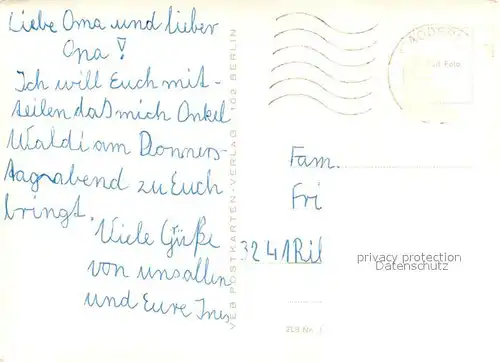 Liebe Oma und lieber
Opa!
Ich will Euch mit-
teilen daß mich Onkel
Waldi am Donners-
tagabend zu Euch
bringt.
Viele Grüße
von uns allen
und Eure Ines
VEB POSTKARTEN-VERLAG 102 BERLIN
Fam.
Fri
3241 Ril
privacy protection
Datenschutz